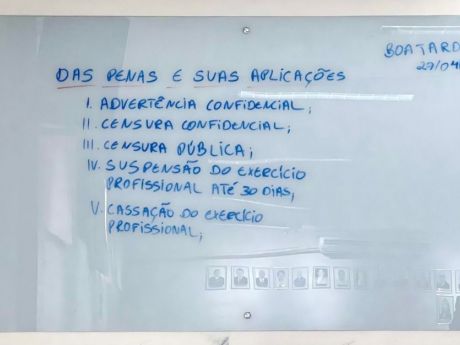 BOA TARD
27/04
DAS PENAS E SUAS APLICAÇÕES
I. ADVERTÊNCIA CONFIDENCIAL;
II. CENSURA CONFIDENCIAL;
III. CENSURA PÚBLICA;
IV. SUSPENSÃO DO EXERCÍCIO
PROFISSIONAL ATÉ 30 DIAS;
V. CASSAÇÃO DO EXERCÍCIO
PROFISSIONAL;